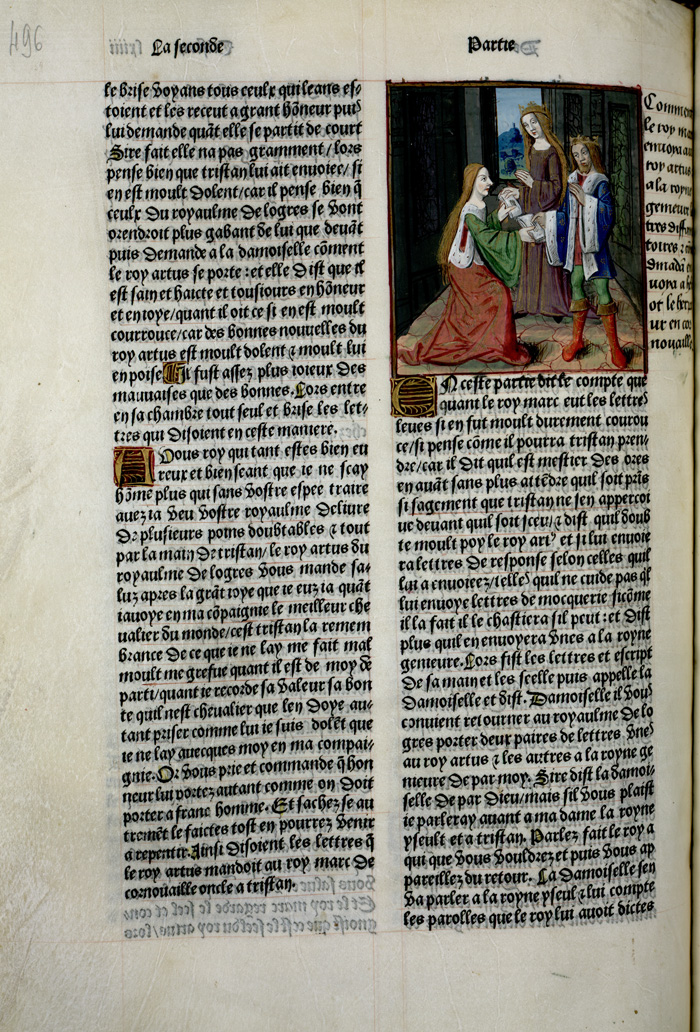 496
La seconde
Partie
le brise voyans tous ceulx qui leans es-
toient et les receut a grant hõneur puis
lui demande quãt elle se partit de court
Sire fait elle na pas gramment / lors
pense bien que tristan lui ait enuoiee / si
en est moult dolent / car il pense bien q̃
ceulx du royaulme de logres se vont
orendroit plus gabant de lui que deuãt
puis demande a la damoiselle cõment
le roy artus se porte : et elle dist que il
est sain et haicte et tousiours en hõneur
et en ioye / quant il oit ce si en est moult
courrouce / car des bonnes nouuelles du
roy artus est moult dolent ⁊ moult lui
en poise. Il fust assez plus ioieux des
mauuaises que des bonnes. Lors entre
en sa chambre tout seul et brise les let-
tres qui disoient en ceste maniere.
A Vous roy qui tant estes bien eu
reux et bien seant que ie ne scay
hõme plus qui sans vostre espee traire
auez ia veu vostre royaulme deliure
de plusieurs poins doubtables ⁊ tout
par la main de tristan / le roy artus du
royaulme de logres vous mande sa-
luz apres la grãt ioye que ie euz ia quãt
iauoye en ma cõpaignie le meilleur che
ualier du monde / cest tristan la remem
brance de ce que ie ne lay me fait mal
moult me grefue quant il est de moy de
parti / quant ie recorde sa valeur sa bon
te quil nest cheualier que len doye au-
tant priser comme lui ie suis dolẽt que
ie ne lay auecques moy en ma compai-
gnie. Or vous prie et commande q̃ hon
neur lui portez autant comme on doit
porter a franc homme. Et sachez se au
tremẽt le faictes tost en pourrez venir
a repentir. Ainsi disoient les lettres q̃
le roy artus mandoit au roy marc de
cornouaille oncle a tristan.
Comment
le roy marc
enuoya au
roy artus
a la royne
genieure
tres
toires
vora a
nouaille
EN ceste partie dit le compte que
quant le roy marc eut les lettres
leues si en fut moult durement courou
ce / si pense cõme il pourra tristan pren-
dre / car il dit quil est mestier des ores
en auãt sans plus attẽdre quil soit pris
si sagement que tristan ne sen appercoi
ue deuant quil soit sceu / ⁊ dist quil doub
te moult poy le roy art⁹ et si lui enuoie
ra lettres de response selon celles quil
lui a enuoiees / telles quil ne cuide pas q̃l
lui enuoye lettres de mocquerie sicõme
il la fait il le chastiera sil peut : et dist
plus quil en enuoyera vnes a la royne
genieure. Lors fist les lettres et escript
de sa main et les scelle puis appelle la
damoiselle et dist. Damoiselle il vous
conuient retourner au royaulme de lo
gres porter deux paires de lettres vnes
au roy artus ⁊ les autres a la royne ge
nieure de par moy. Sire dist la damoi-
selle de par dieu / mais sil vous plaist
ie parleray auant a ma dame la royne
yseult et a tristan. Parlez fait le roy a
qui que vous vouldrez et puis vous ap
pareillez du retour. La damoiselle sen
va parler a la royne yseul ⁊ lui compte
les parolles que le roy lui auoit dictes